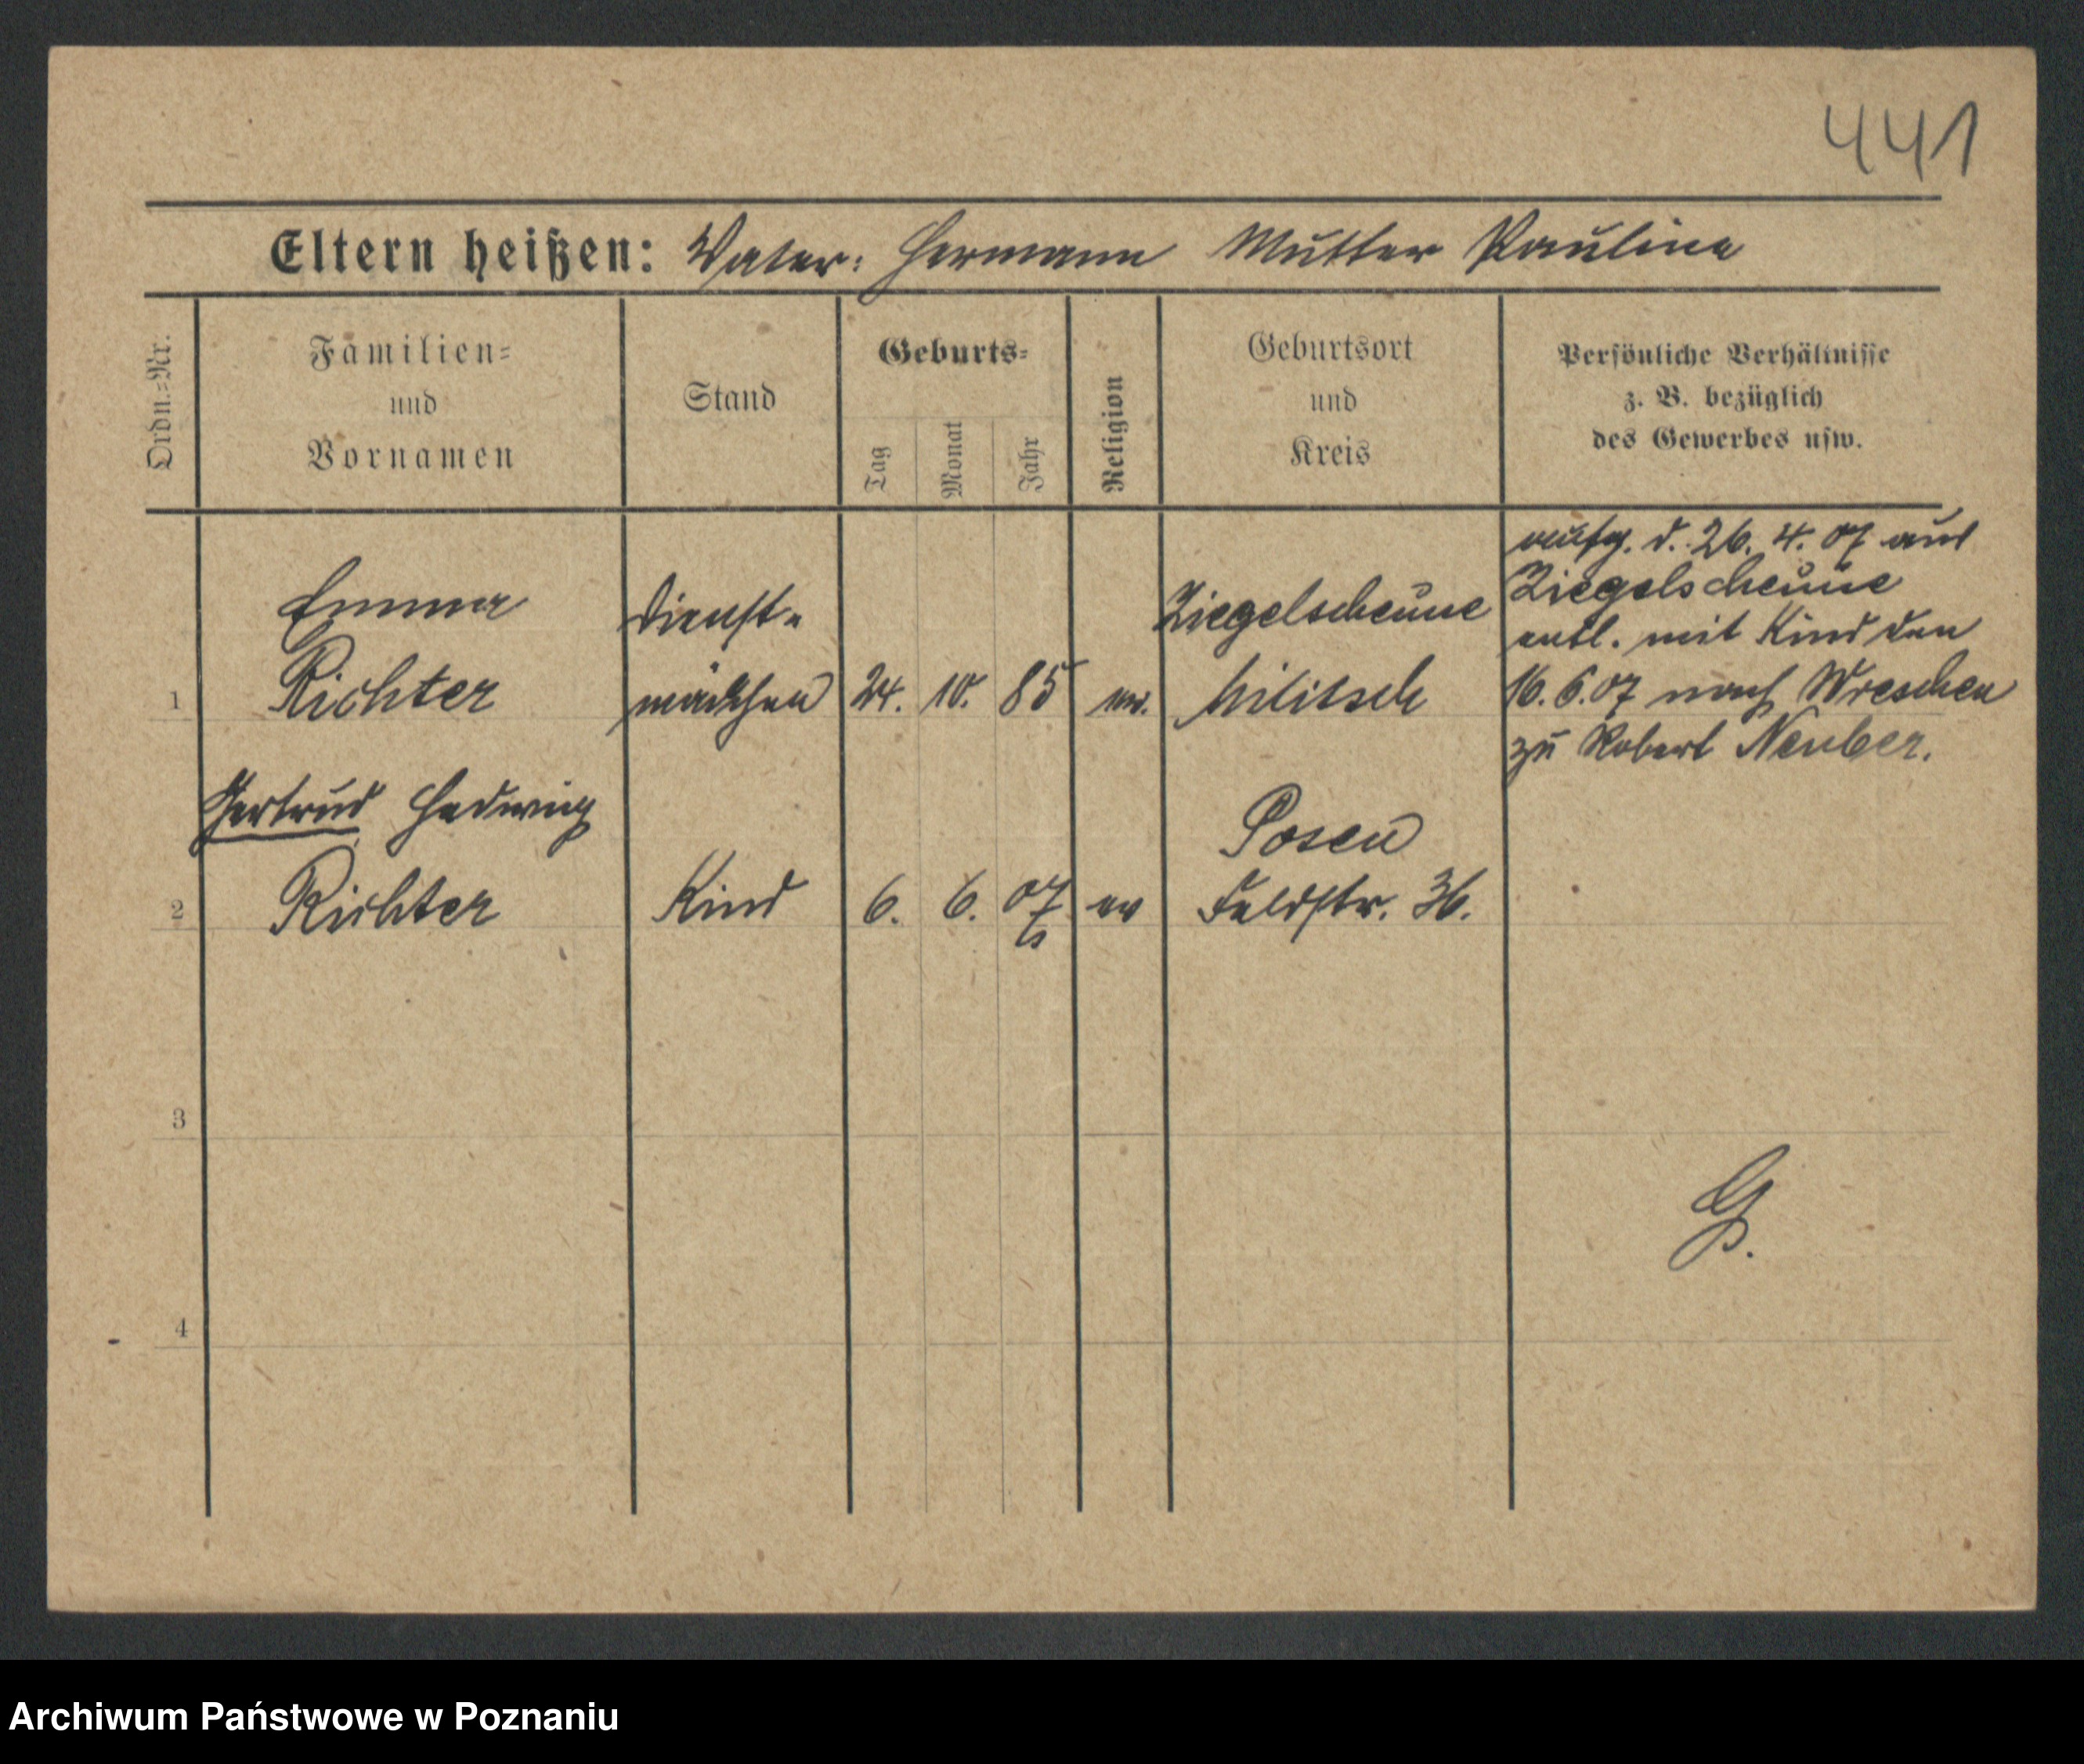 441
Eltern heißen: Vater: Hermann Mutter Pauline
Ordn.=Nr.
Familien=
und
Vornamen
Stand
Geburts=
Tag
Monat
Jahr
Religion
Geburtsort
und
Kreis
Persönliche Verhältnisse
z. B. bezüglich
des Gewerbes usw.
1
Emma
Richter
Dienst-
mädchen
24. 10. 85
ev.
Ziegelscheune
Militsch
aufg. d. 26. 4. 07 aus
Ziegelscheune
entl. mit Kind den
16. 6. 07 nach Wreschen
zu Robert Neuber.
2
Gertrud Hedwig
Richter
Kind
6. 6. 07
ev
Posen
Feldstr. 36.
3
4
G.
Archiwum Państwowe w Poznaniu